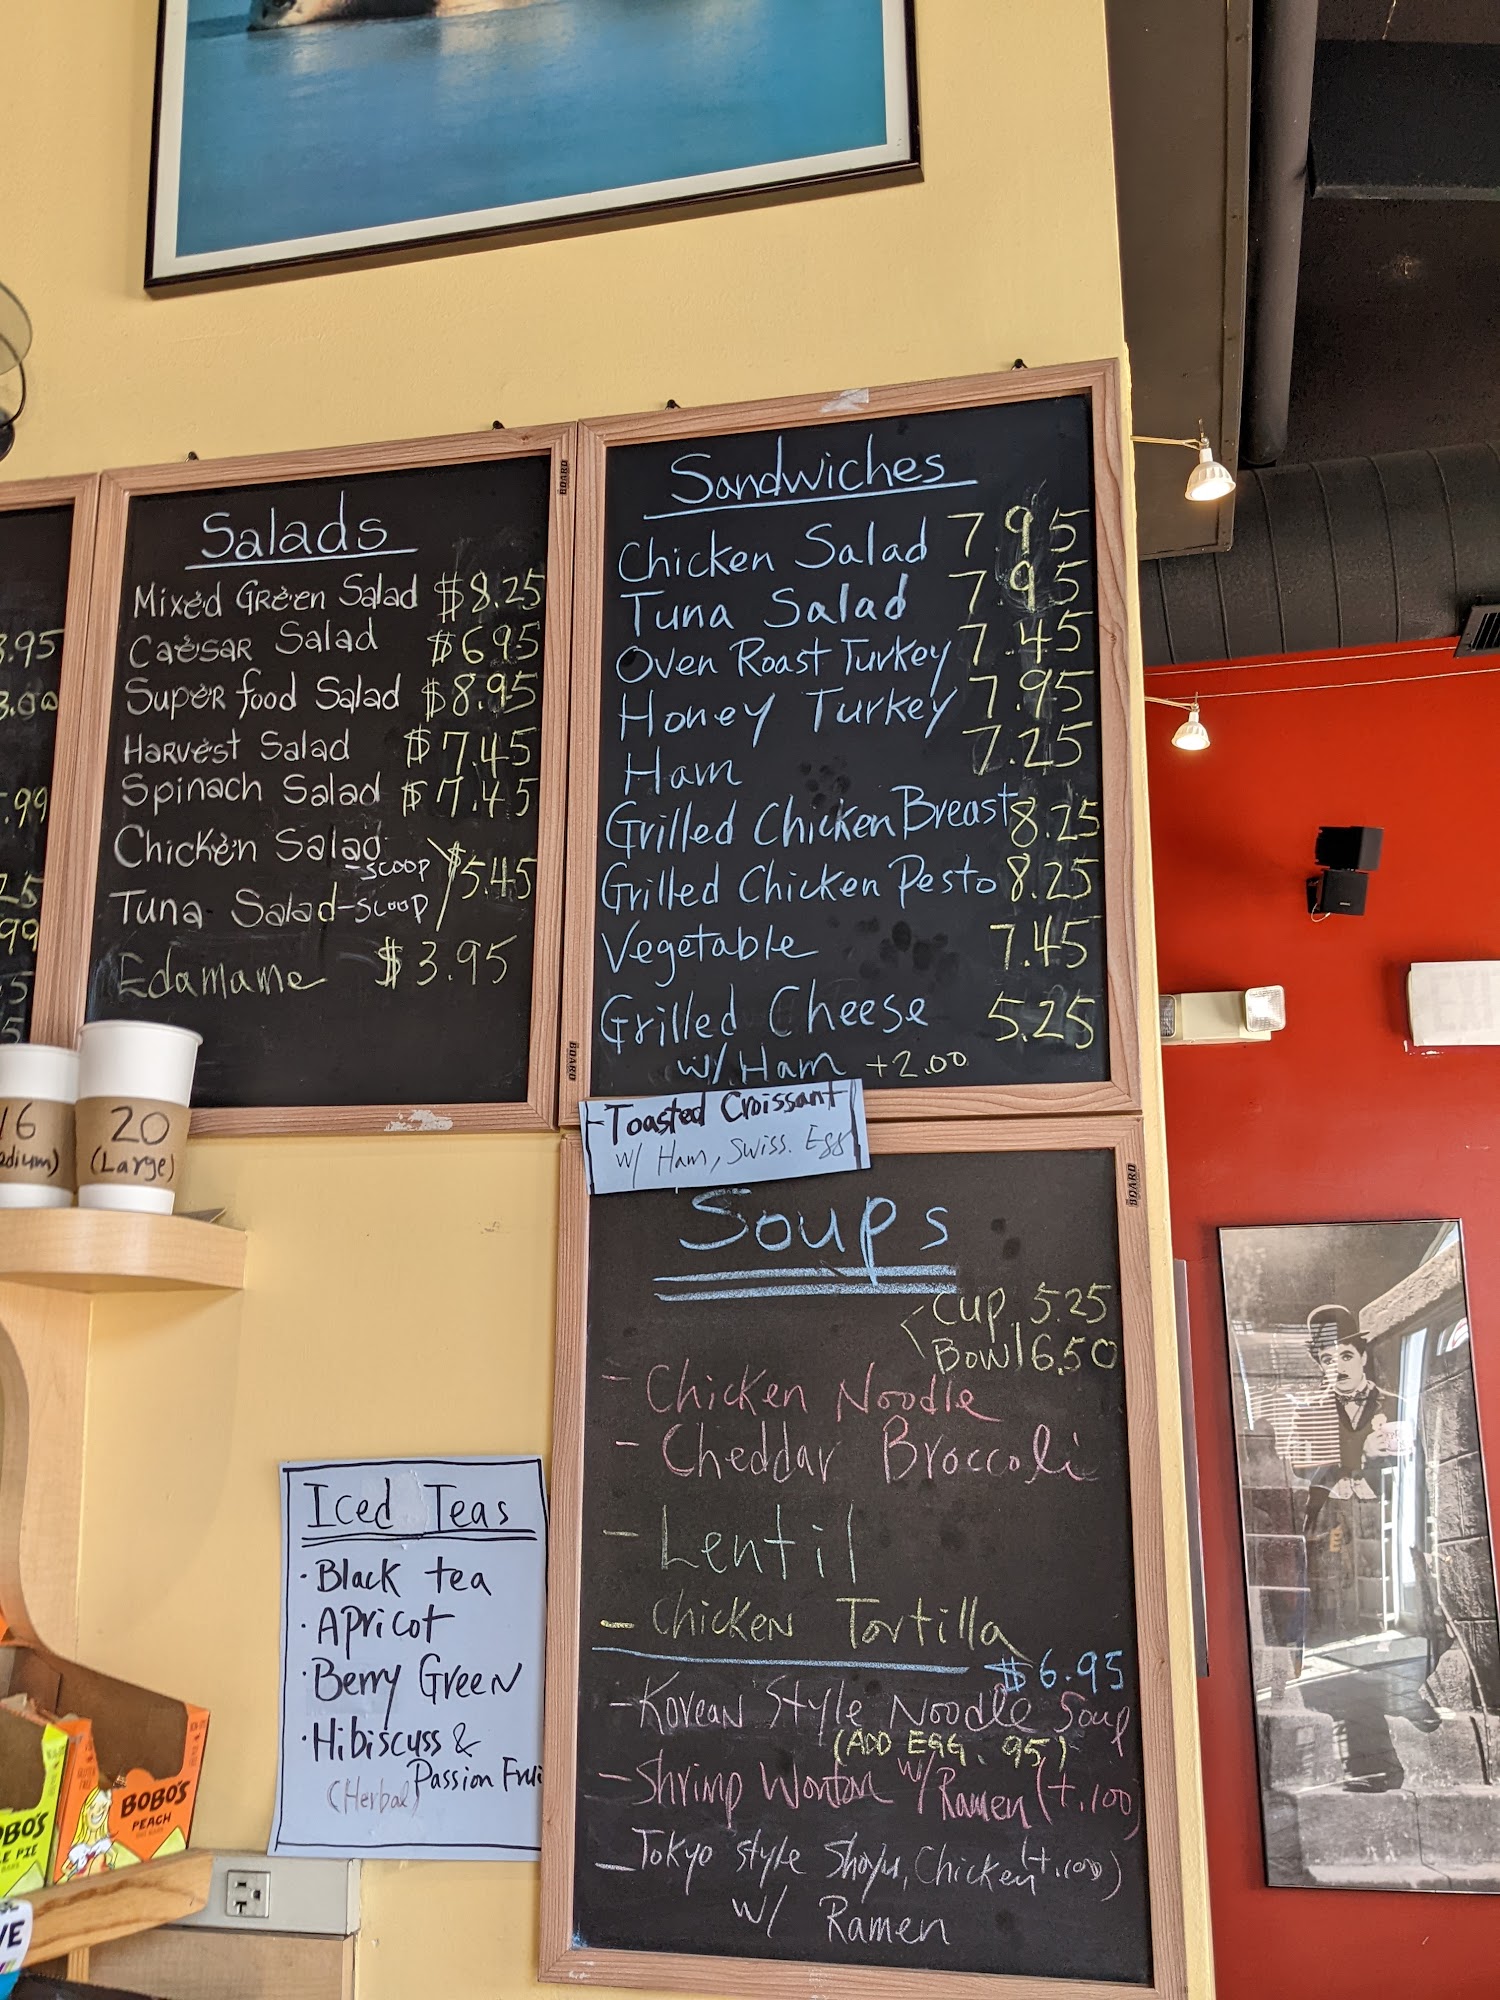 Salads
Mixed Green Salad $8.25
Caesar Salad $6.95
Super food Salad $8.95
Harvest Salad $7.45
Spinach Salad $7.45
Chicken Salad
-scoop
$5.45
Tuna Salad-scoop
Edamame $3.95
Sandwiches
Chicken Salad 7.95
Tuna Salad 7.95
Oven Roast Turkey 7.45
Honey Turkey 7.95
Ham 7.25
Grilled Chicken Breast 8.25
Grilled Chicken Pesto 8.25
Vegetable 7.45
Grilled Cheese 5.25
w/ Ham +2.00
-Toasted Croissant
w/ Ham, Swiss. Egg
Soups
Cup 5.25
Bowl 6.50
- Chicken Noodle
- Cheddar Broccoli
- Lentil
- Chicken Tortilla
$6.95
- Korean Style Noodle Soup
(ADD EGG .95)
- Shrimp Wonton w/ Ramen (+.100)
- Tokyo style Shoyu, Chicken (+.100)
w/ Ramen
Iced Teas
· Black tea
· Apricot
· Berry Green
· Hibiscuss &
Passion Frui
(Herbal)
3.95
.99
25
99
5
5
16
20
(Large)
BOBO'S
PEACH
OBO'S
E PIE
VE
BOARD
BOARD
BOARD